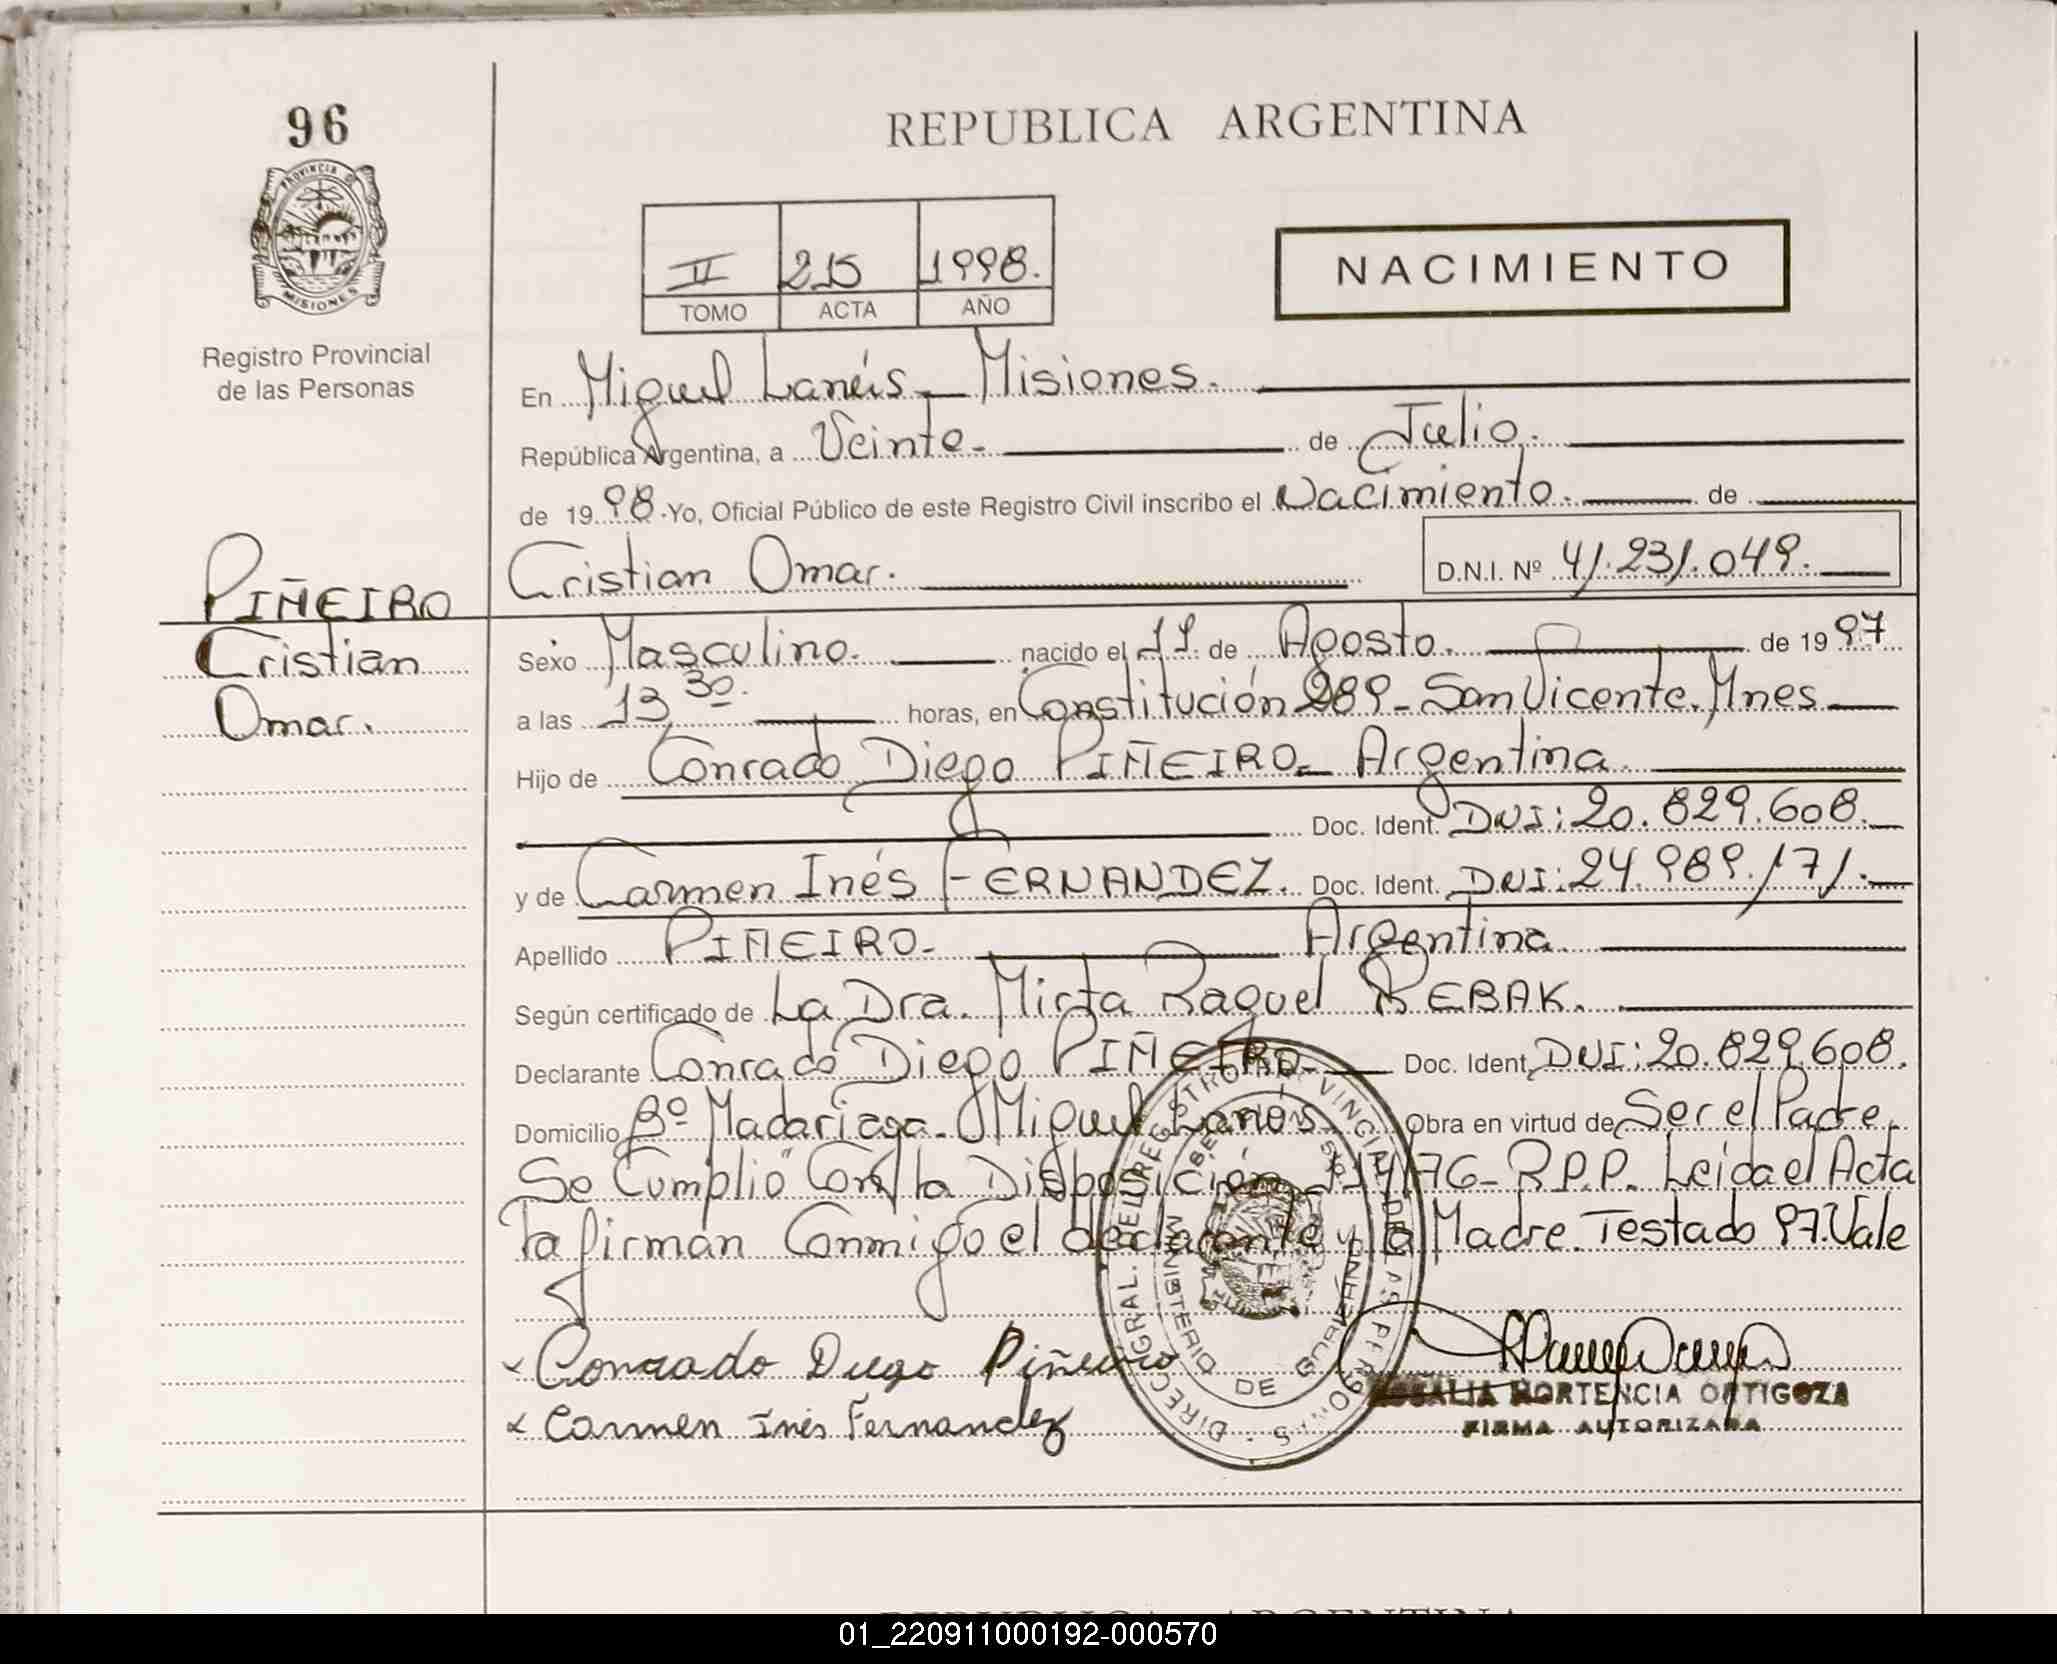 96
REPUBLICA ARGENTINA
PROVINCIA DE MISIONES
II 215 1998.
TOMO ACTA AÑO
NACIMIENTO
Registro Provincial
de las Personas
En Miguel Lanús - Misiones.
República Argentina, a Veinte - de Julio.
de 1998 - Yo, Oficial Público de este Registro Civil inscribo el Nacimiento. de
PIÑEIRO
Cristian
Omar.
Cristian Omar. D.N.I. Nº 41.231.049.
Sexo Masculino. nacido el 19. de Agosto. de 1997
a las 13 30. horas, en Constitución 989 - San Vicente. Mnes
Hijo de Conrado Diego PIÑEIRO - Argentina.
Doc. Ident. DNI: 20.829.608.
y de Carmen Inés FERNANDEZ. Doc. Ident. DNI: 24.989.171.
Apellido PIÑEIRO - Argentina.
Según certificado de La Dra. Mirta Raquel REBAK.
Declarante Conrado Diego PIÑEIRO - Doc. Ident. DNI: 20.829.608.
Domicilio Bº Madariaga - Miguel Lanús. Obra en virtud de Ser el Padre.
Se Cumplió Con la Disposición 114/76 - R.P.P. Leida el Acta
la firman Conmigo el declarante y la Madre. Testado 97. Vale
Conrado Diego Piñeiro
Carmen Inés Fernandez
DIREC. GRAL. DEL REGISTRO PROVINCIAL DE LAS PERSONAS
MINISTERIO DE GOBIERNO
ROSALIA HORTENCIA ORTIGOZA
FIRMA AUTORIZADA
REPUBLICA ARGENTINA
01_220911000192-000570